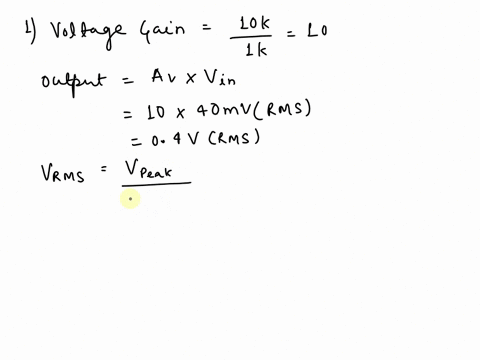 1) Voltage Gain = 10k / 1k = 10
Output = Av x Vin
= 10 x 40mV (RMS)
= 0.4 V (RMS)
VRMS = VPeak /